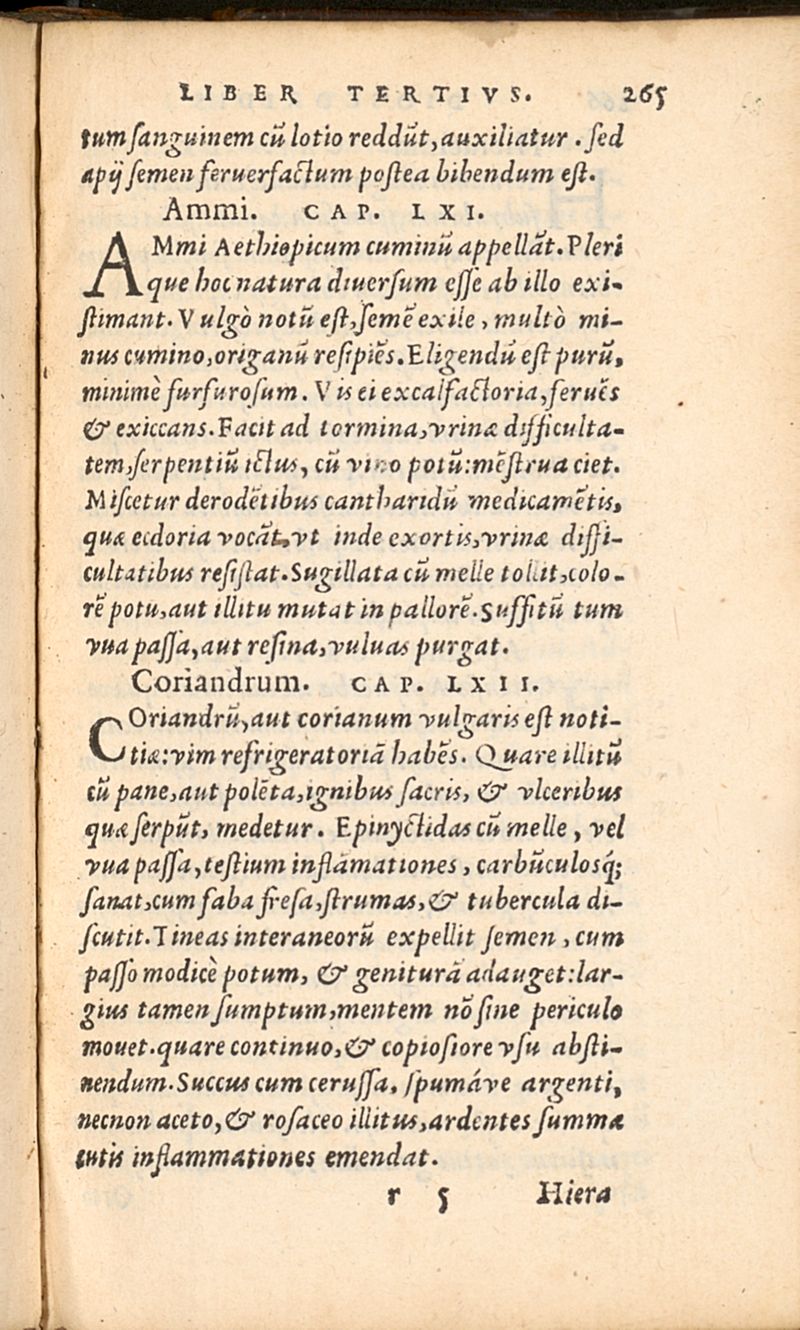 LIBER TERTIVS. 265
tum sanguinem cũ lotio reddũt, auxiliatur. sed
apij semen feruerfactum postea bibendum est.
Ammi. CAP. LXI.
AMmi Aethiopicum cuminũ appellãt. Pleri
que hoc natura diuersum esse ab illo exi-
stimant. Vulgò notũ est, semẽ exile, multò mi-
nus cumino, origanũ resipiẽs. Eligendũ est purũ,
minimè furfurosum. Vis ei excalfactoria, feruẽs
& exiccans. Facit ad tormina, vrinæ difficulta-
tem, serpentiũ ictus, cũ vino potũ: mẽstrua ciet.
Miscetur derodẽtibus cantharidũ medicamẽtis,
quæ ecdoria vocãt, vt inde exortis, vrinæ diffi-
cultatibus resistat. Sugillata cũ melle tollit, colo-
rẽ potu, aut illitu mutat in pallorẽ. Suffitũ tum
vua passa, aut resina, vuluas purgat.
Coriandrum. CAP. LXII.
COriandrũ, aut corianum vulgaris est noti-
tiæ: vim refrigeratoriã habẽs. Quare illitũ
cũ pane, aut polẽta, ignibus sacris, & vlceribus
quæ serpũt, medetur. Epinyctidas cũ melle, vel
vua passa, testium inflãmationes, carbũculosq́;
sanat, cum faba fresa, strumas, & tubercula di-
scutit. Tineas interaneorũ expellit semen, cum
passo modicè potum, & geniturã adauget: lar-
gius tamen sumptum, mentem nõ sine periculo
mouet. quare continuo, & copiosiore vsu absti-
nendum. Succus cum cerussa, spumáve argenti,
necnon aceto, & rosaceo illitus, ardentes summæ
cutis inflammationes emendat.
r 5 Hiera